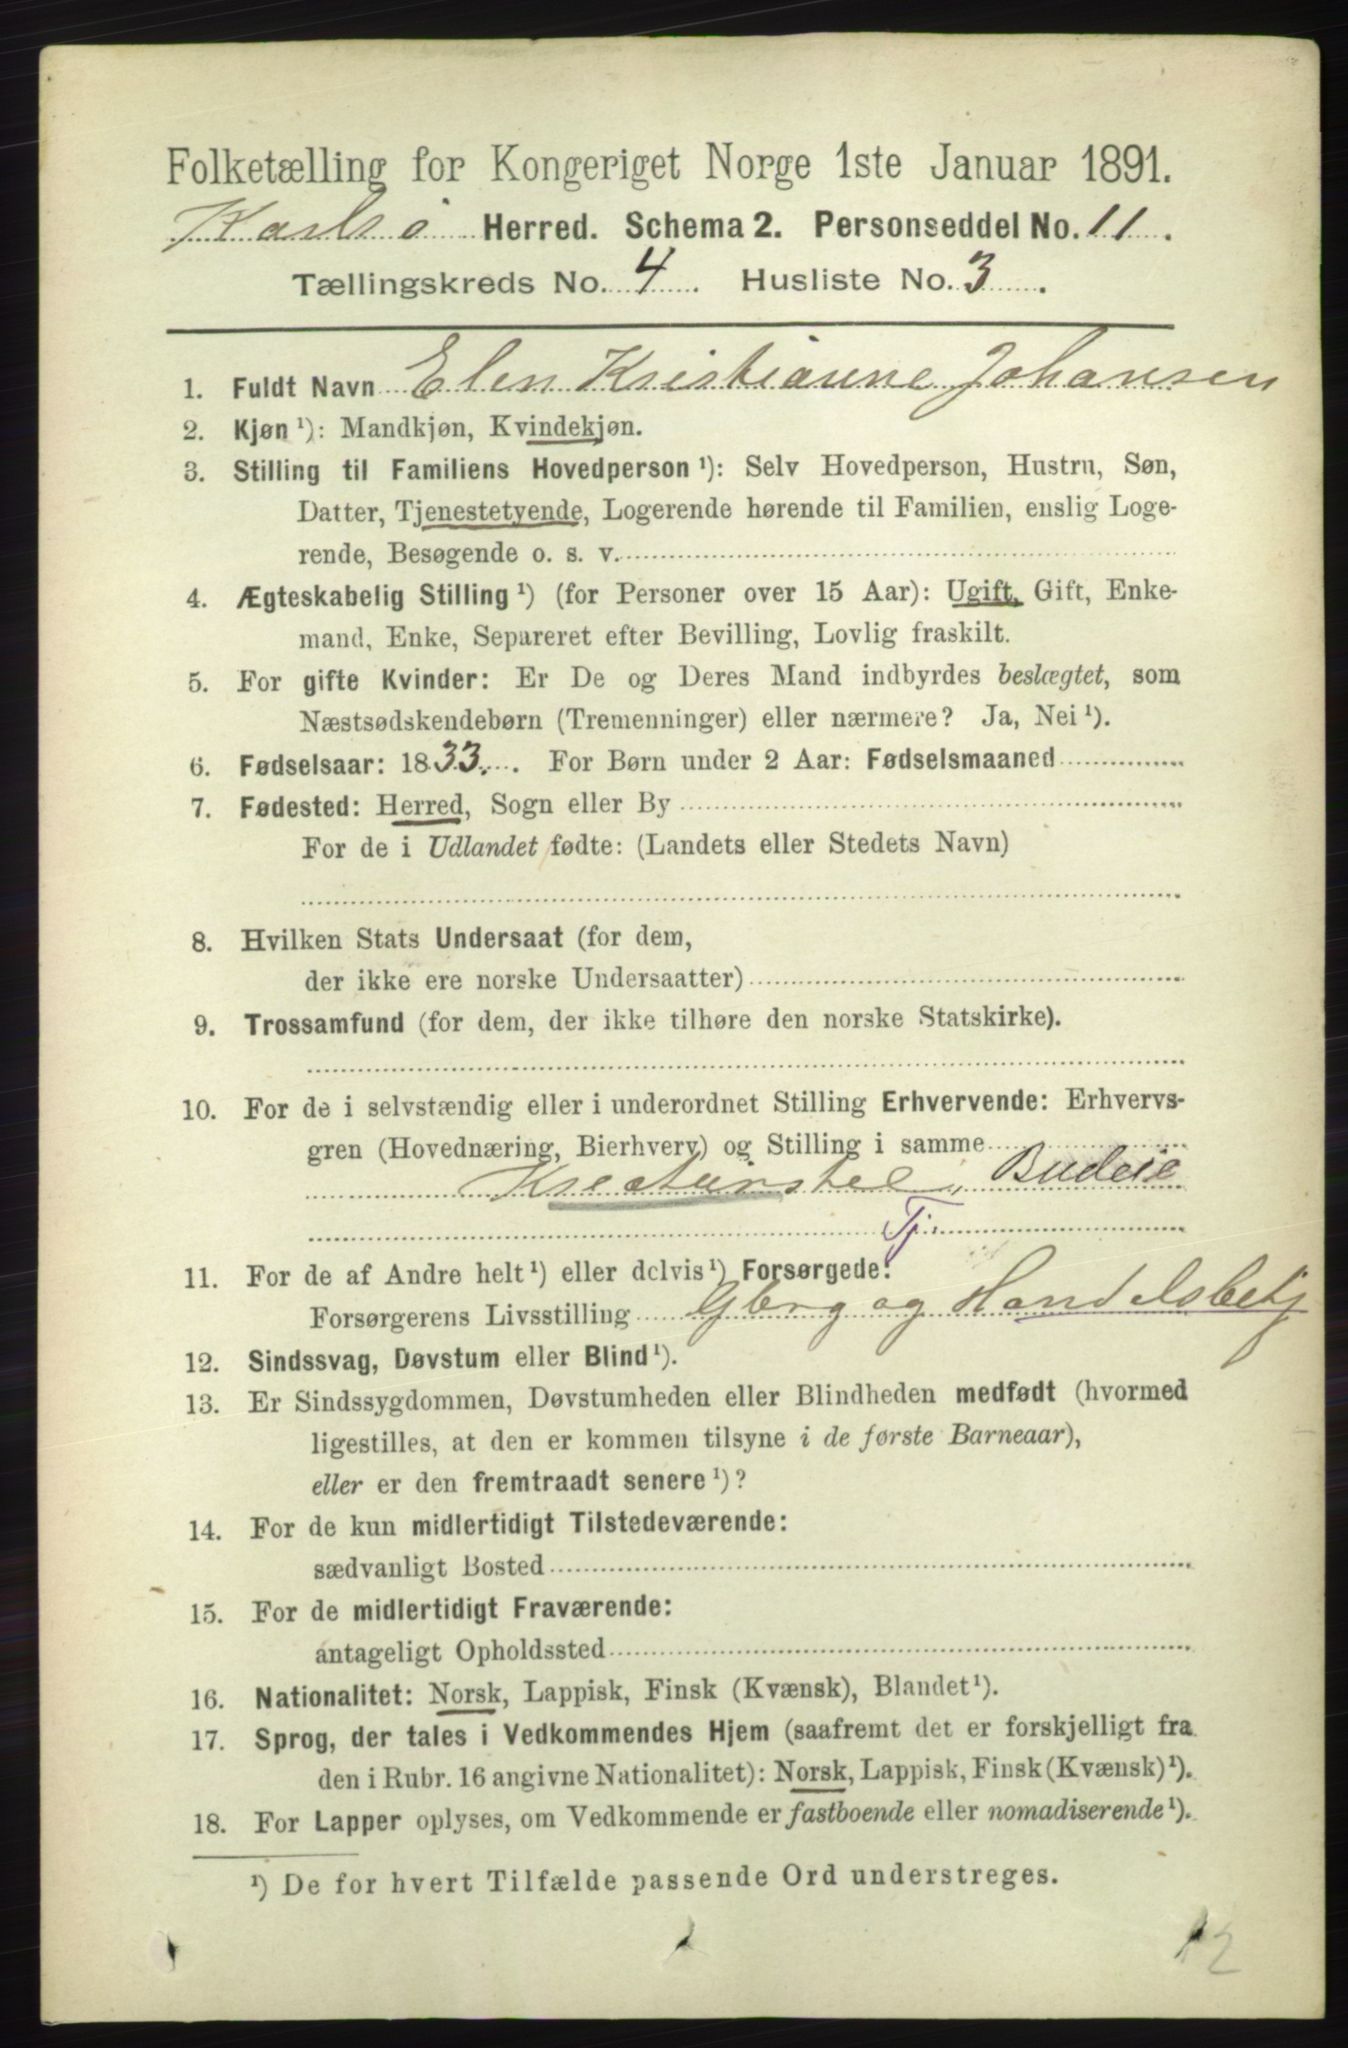 Folketælling for Kongeriget Norge 1ste Januar 1891.
Karlsö Herred. Schema 2. Personseddel No. 11.
Tællingskreds No. 4. Husliste No. 3.
1. Fuldt Navn Elen Kristianne Johansen
2. Kjøn ¹): Mandkjøn, Kvindekjøn.
3. Stilling til Familiens Hovedperson ¹): Selv Hovedperson, Hustru, Søn,
Datter, Tjenestetyende, Logerende hørende til Familien, enslig Loge-
rende, Besøgende o. s. v.
4. Ægteskabelig Stilling ¹) (for Personer over 15 Aar): Ugift, Gift, Enke-
mand, Enke, Separeret efter Bevilling, Lovlig fraskilt.
5. For gifte Kvinder: Er De og Deres Mand indbyrdes beslægtet, som
Næstsødskendebørn (Tremenninger) eller nærmere? Ja, Nei ¹).
6. Fødselsaar: 1833. For Børn under 2 Aar: Fødselsmaaned
7. Fødested: Herred, Sogn eller By
For de i Udlandet fødte: (Landets eller Stedets Navn)
8. Hvilken Stats Undersaat (for dem,
der ikke ere norske Undersaatter)
9. Trossamfund (for dem, der ikke tilhøre den norske Statskirke).
10. For de i selvstændig eller i underordnet Stilling Erhvervende: Erhvervs-
gren (Hovednæring, Bierhverv) og Stilling i samme
Kreaturstel, Budeie
Tj.
11. For de af Andre helt ¹) eller delvis ¹) Forsørgede:
Forsørgerens Livsstilling Gbrg og Handelsbetj
12. Sindssvag, Døvstum eller Blind ¹).
13. Er Sindssygdommen, Døvstumheden eller Blindheden medfødt (hvormed
ligestilles, at den er kommen tilsyne i de første Barneaar),
eller er den fremtraadt senere ¹)?
14. For de kun midlertidigt Tilstedeværende:
sædvanligt Bosted
15. For de midlertidigt Fraværende:
antageligt Opholdssted
16. Nationalitet: Norsk, Lappisk, Finsk (Kvænsk), Blandet ¹).
17. Sprog, der tales i Vedkommendes Hjem (saafremt det er forskjelligt fra
den i Rubr. 16 angivne Nationalitet): Norsk, Lappisk, Finsk (Kvænsk) ¹).
18. For Lapper oplyses, om Vedkommende er fastboende eller nomadiserende ¹).
¹) De for hvert Tilfælde passende Ord understreges.